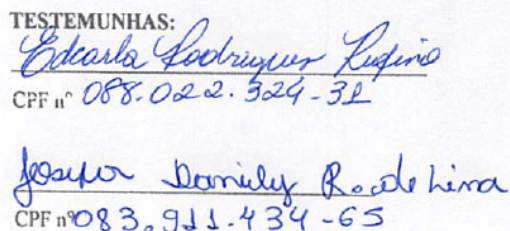 TESTEMUNHAS:
Edcarla Rodrigues Rufino
CPF nº 088.022.324-31
Josefa Daniely R. de Lima
CPF nº 083.911.434-65